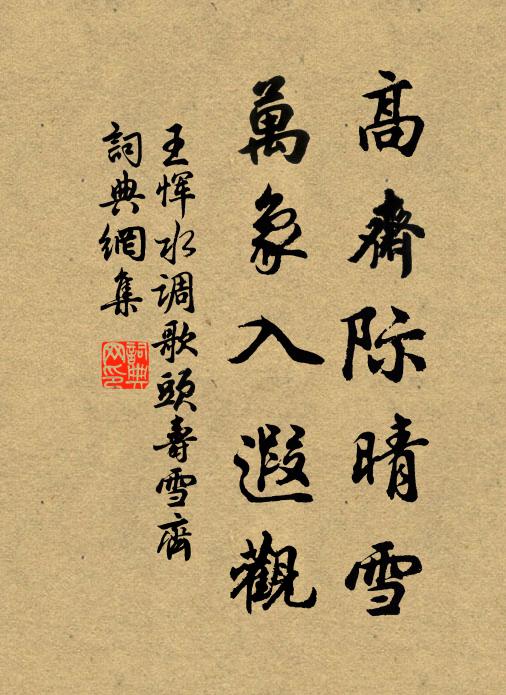 高齋际晴雪
萬象入遐觀
王恽水调歌頭壽雪齋
詞典網集
詞典
网